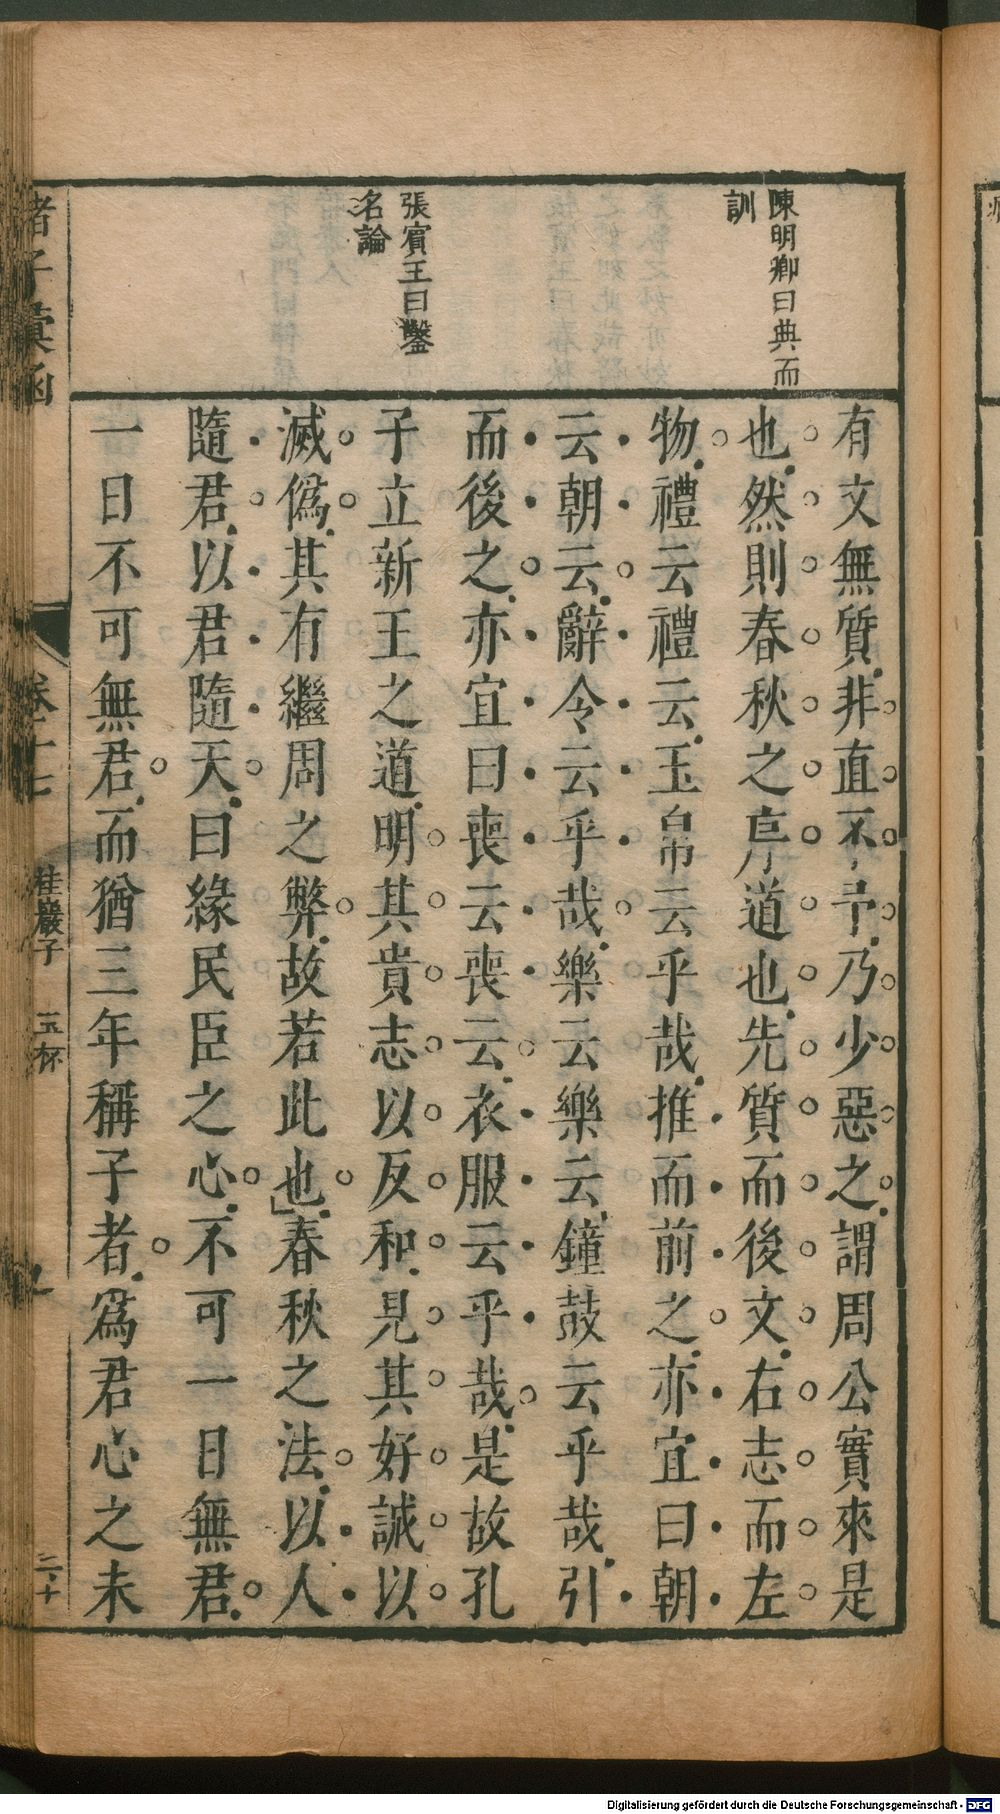 陳明卿曰典而
訓
張賓王曰鑿
名論
有文無質非直不予乃少惡之謂周公寔來是
也然則春秋之序道也先質而後文右志而左
物禮云禮云玉帛云乎哉推而前之亦宜曰朝
云朝云辭令云乎哉樂云樂云鐘鼓云乎哉引
而後之亦宜曰喪云喪云衣服云乎哉是故孔
子立新王之道明其貴志以反和見其好誠以
滅僞其有繼周之弊故若此也春秋之法以人
隨君以君隨天曰緣民臣之心不可一日無君
一日不可無君而猶三年稱子者爲君心之未
諸子彙函
卷十七
桂巖子
玉杯
二十
Digitalisierung gefördert durch die Deutsche Forschungsgemeinschaft - DFG